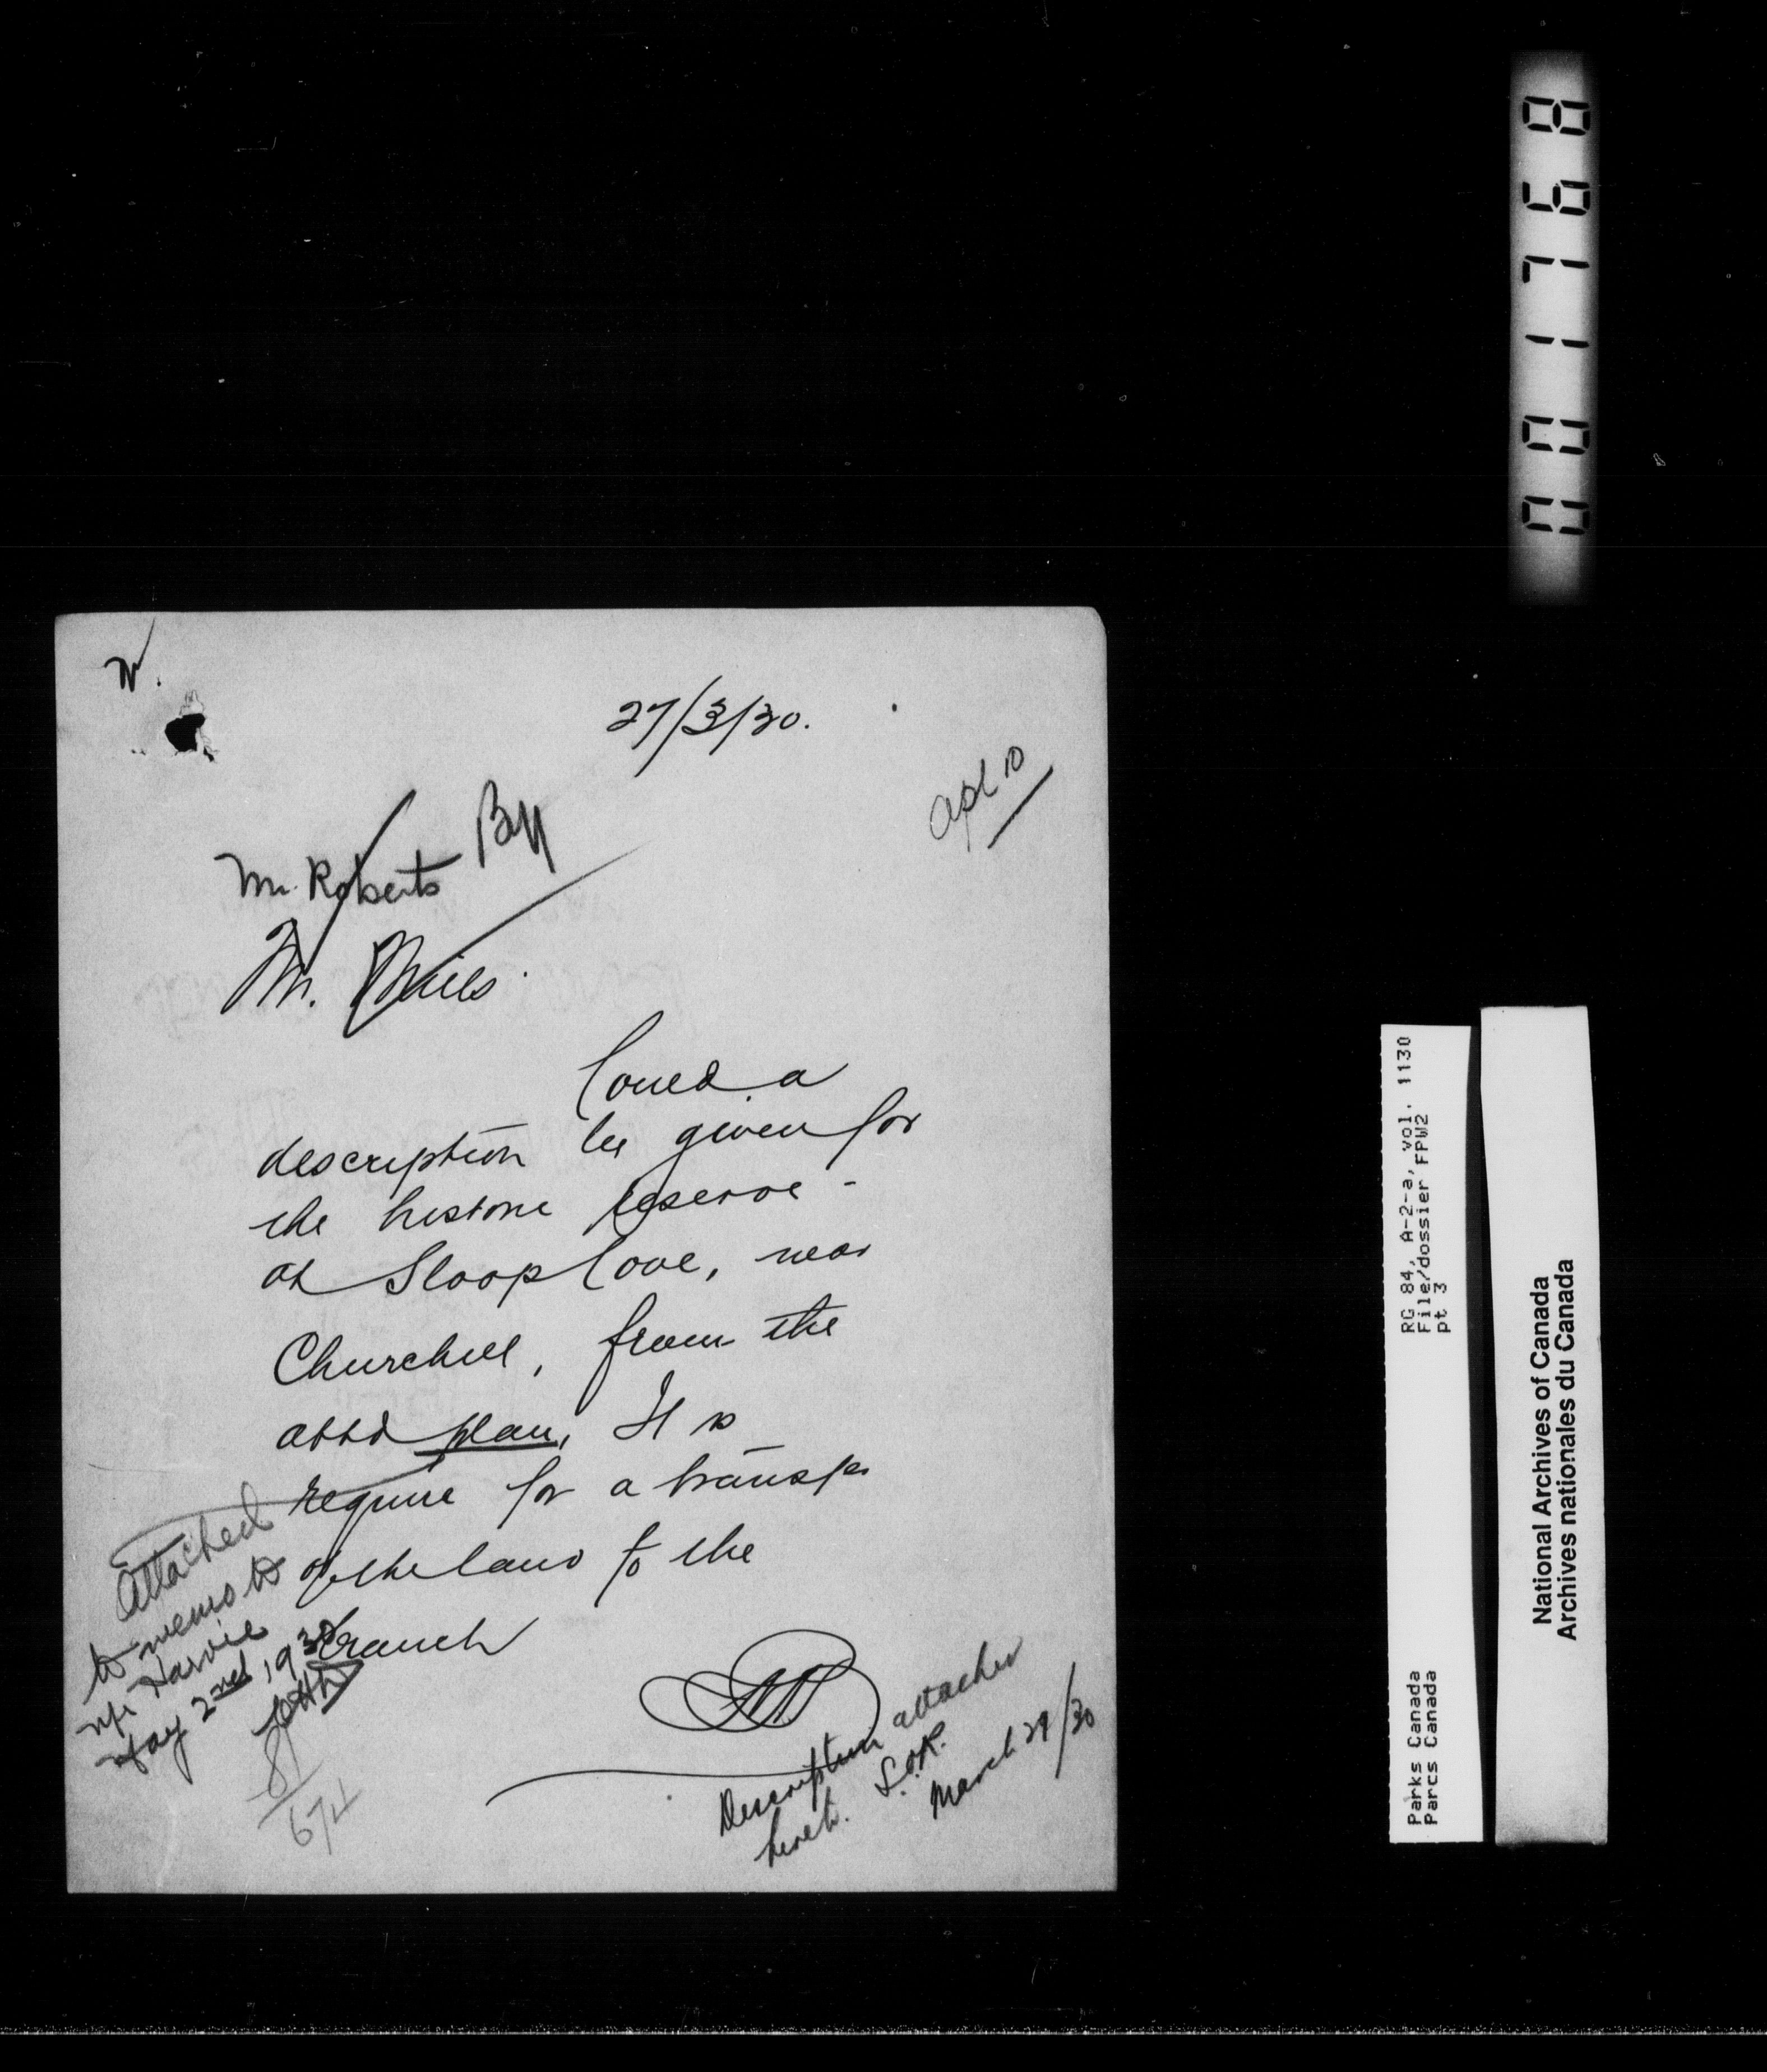 001768
27/3/30.
Apl 10
Mr. Roberts
Mr.
Could a
description be given for
the historic reserve -
at Sloop Cove, near
Churchill, from the
attd plan, It is
require for a transfer
of the land to the
Branch
Attached
to memo to
Mr Harvie
May 2nd, 1930
Description attached
hereto. S.O.R.
March 29/30
RG 84, A-2-a, vol. 1130
File/dossier FPW2
pt 3
Parks Canada
Parcs Canada
National Archives of Canada
Archives nationales du Canada